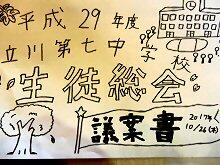 平成29年度
立川第七中学校
生徒総会
議案書
2017年
10/26(木)